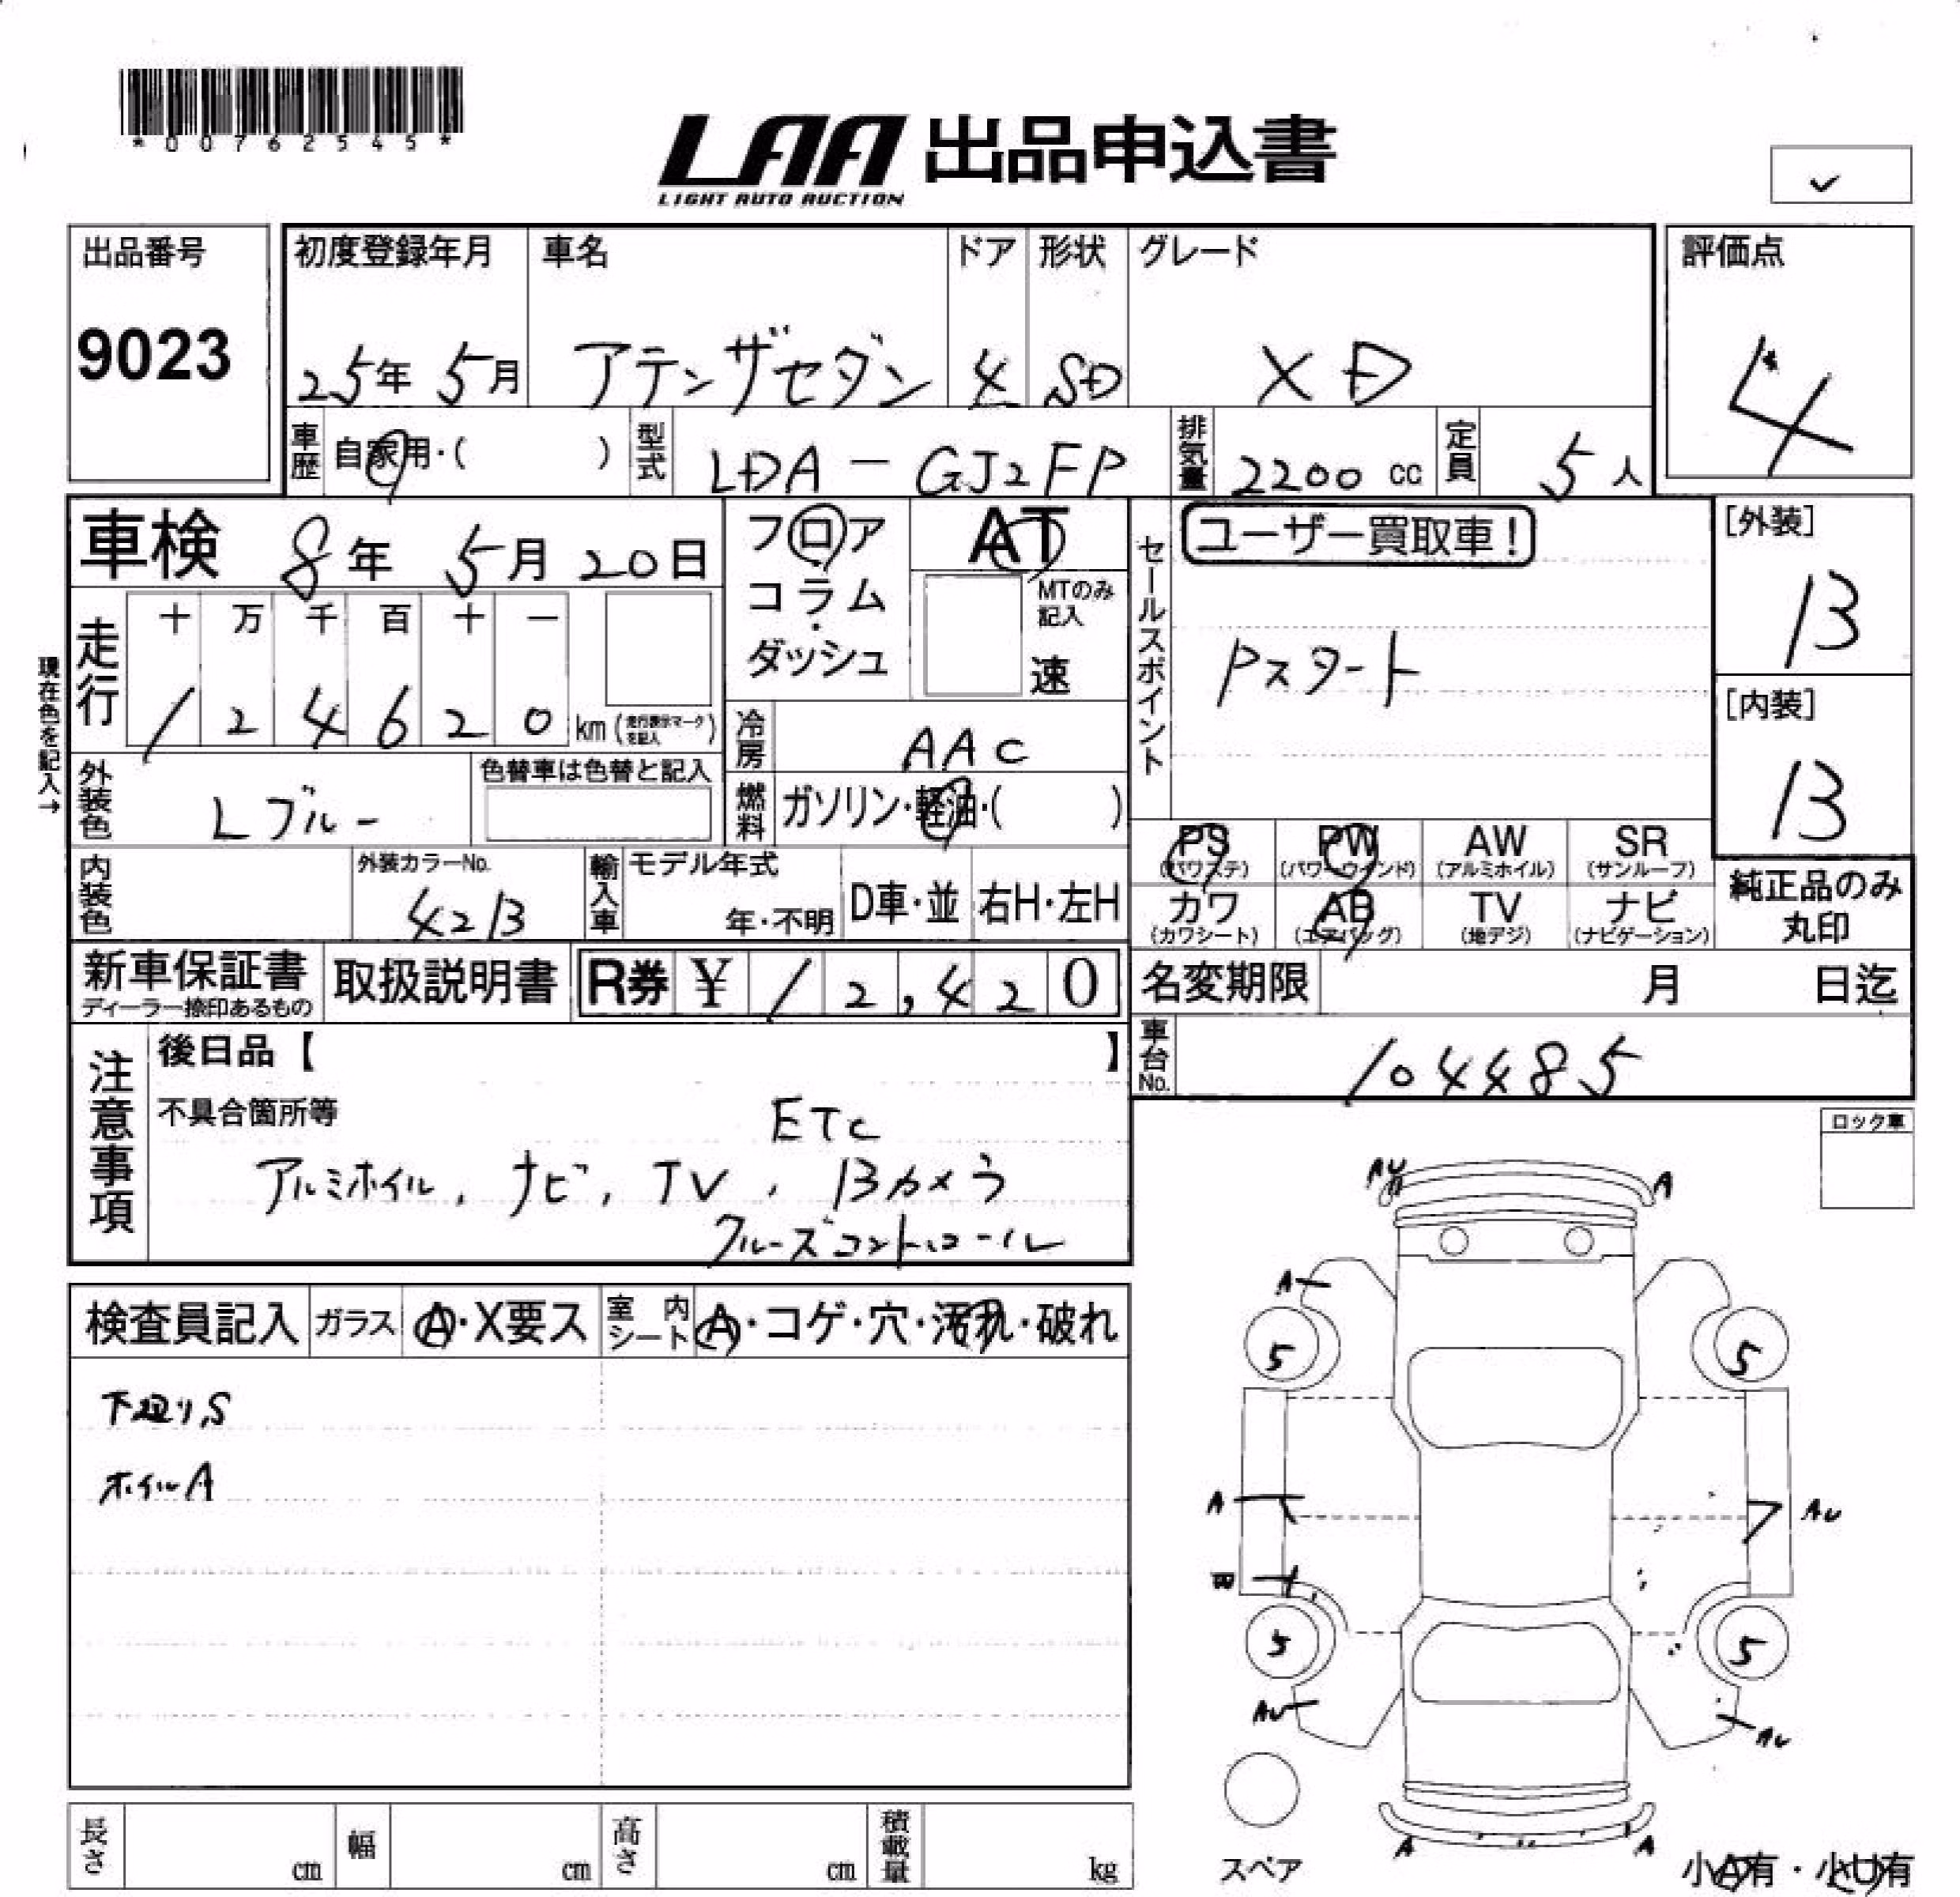 *00762545*
LAA 出品申込書
LIGHT AUTO AUCTION
✓
出品番号
9023
初度登録年月
25年 5月
車名
アテンザセダン
ドア
4
形状
SD
グレード
XD
評価点
4
車歴
自家用・( )
型式
LDA-GJ2FP
排気量
2200 cc
定員
5人
車検 8年 5月 20日
フロア・コラム・ダッシュ
AT
MTのみ記入
速
セールスポイント
ユーザー買取車!
Pスタート
[外装]
B
[内装]
B
現在色を記入→
走行
十 万 千 百 十 一
1 2 4 6 2 0 km (走行表示マークを記入)
冷房
AAC
外装色
Lブルー
色替車は色替と記入
燃料
ガソリン・軽油・( )
内装色
外装カラーNo.
42B
輸入車
モデル年式
年・不明
D車・並
右H・左H
PS (パワステ)
PW (パワーウインド)
AW (アルミホイル)
SR (サンルーフ)
カワ (カワシート)
AB (エアバッグ)
TV (地デジ)
ナビ (ナビゲーション)
純正品のみ丸印
新車保証書
ディーラー捺印あるもの
取扱説明書
R券 ¥ 12,420
名変期限 月 日迄
車台No.
104485
注意事項
後日品【 】
不具合箇所等
ETC
アルミホイル, ナビ, TV, Bカメラ
クルーズコントロール
ロック車
検査員記入
ガラス
A・X要ス
室内シート
A・コゲ・穴・汚れ・破れ
下廻りS
ホイルA
AU
A
A
5
5
A
AU
W
5
5
AU
AU
A
A
スペア
小A有・小U有
長さ cm
幅 cm
高さ cm
積載量 kg